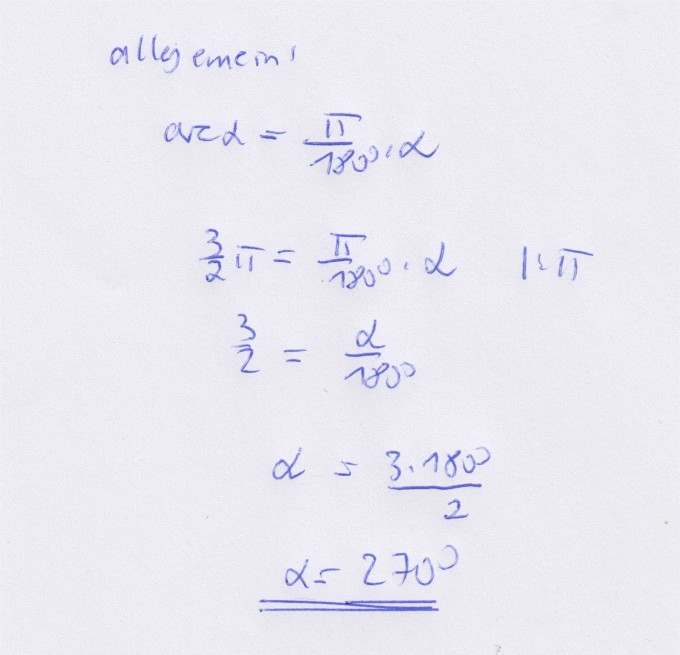 allgemein:
arc α = π/180° · α
3/2 π = π/180° · α |:π
3/2 = α/180°
α = 3·180°/2
α = 270°